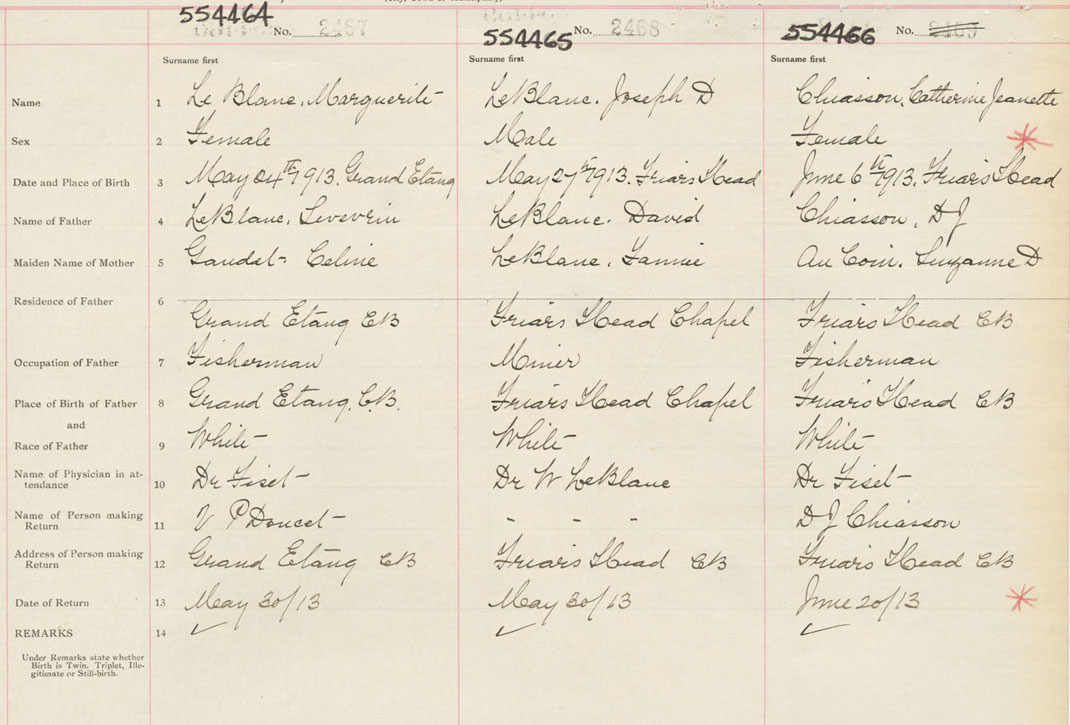 554464 No. 2467
554465 No. 2468
554466 No. 2469
Surname first Surname first Surname first
Name 1 Le Blanc, Marguerite LeBlanc. Joseph D Chiasson, Catherine Jeanette
Sex 2 Female Male Female
Date and Place of Birth 3 May 24th 1913. Grand Etang May 27th 1913. Friars Head June 6th 1913. Friars Head
Name of Father 4 LeBlanc, Severin LeBlanc. David Chiasson, D J
Maiden Name of Mother 5 Gaudet - Celine LeBlanc, Fannie Au Coin. Suzanne D
Residence of Father 6
Grand Etang CB Friars Head Chapel Friars Head CB
Occupation of Father 7 Fisherman Miner Fisherman
Place of Birth of Father 8 Grand Etang. C.B. Friars Head Chapel Friars Head CB
and
Race of Father 9 White White White
Name of Physician in at-
tendance 10 Dr Fiset Dr W LeBlanc Dr Fiset
Name of Person making
Return 11 V P Doucet " " " D J Chiasson
Address of Person making
Return 12 Grand Etang CB Friars Head CB Friars Head CB
Date of Return 13 May 30/13 May 30/13 June 20/13
REMARKS 14
Under Remarks state whether
Birth is Twin, Triplet, Ille-
gitimate or Still-birth.